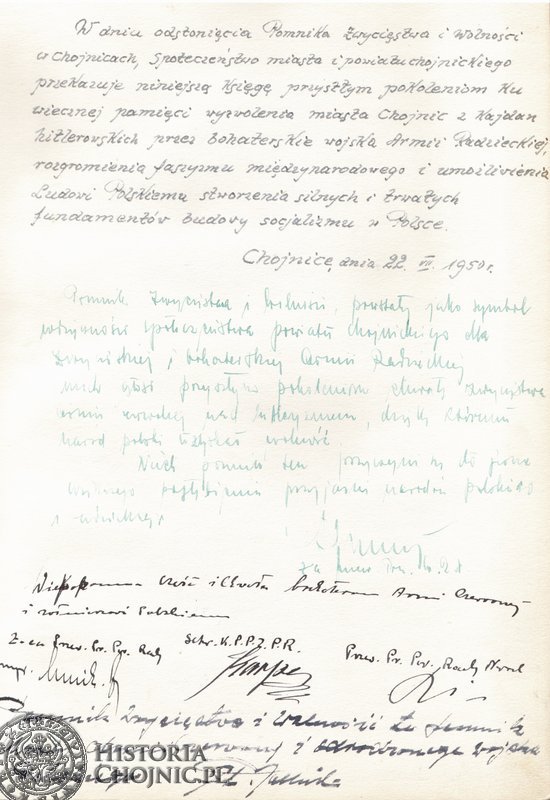 W dniu odsłonięcia Pomnika Zwycięstwa i Wolności
w Chojnicach, Społeczeństwo miasta i powiatu chojnickiego
przekazuje niniejszą Księgę przyszłym pokoleniom ku
wiecznej pamięci wyzwolenia miasta Chojnic z kajdan
hitlerowskich przez bohaterskie wojska Armii Radzieckiej,
rozgromienia faszyzmu międzynarodowego i umożliwienia
Ludowi Polskiemu stworzenia silnych i trwałych
fundamentów budowy socjalizmu w Polsce.
Chojnice, dnia 22 VII 1950 r.
Pomnik Zwycięstwa i Wolności, powstały jako symbol
wdzięczności społeczeństwa powiatu chojnickiego dla
i bohaterskiej Armii Radzieckiej
niech głosi przyszłym pokoleniom chwałę zwycięstwa
nad hitleryzmem, dzięki któremu
naród polski uzyskał wolność.
Niech pomnik ten przyczyni się do
przyjaźni narodu polskiego
i
cześć i chwała bohaterom Armii Czerwonej
i żołnierzowi
Z-ca Przew. Pr. Pow. Rady
Sekr. K.P.P.Z.P.R.
Przew. Pr. Pow. Rady Narod
Pomnik Zwycięstwa i Wolności to pomnik
i odrodzonego wojska
HISTORIA
CHOJNIC.PL